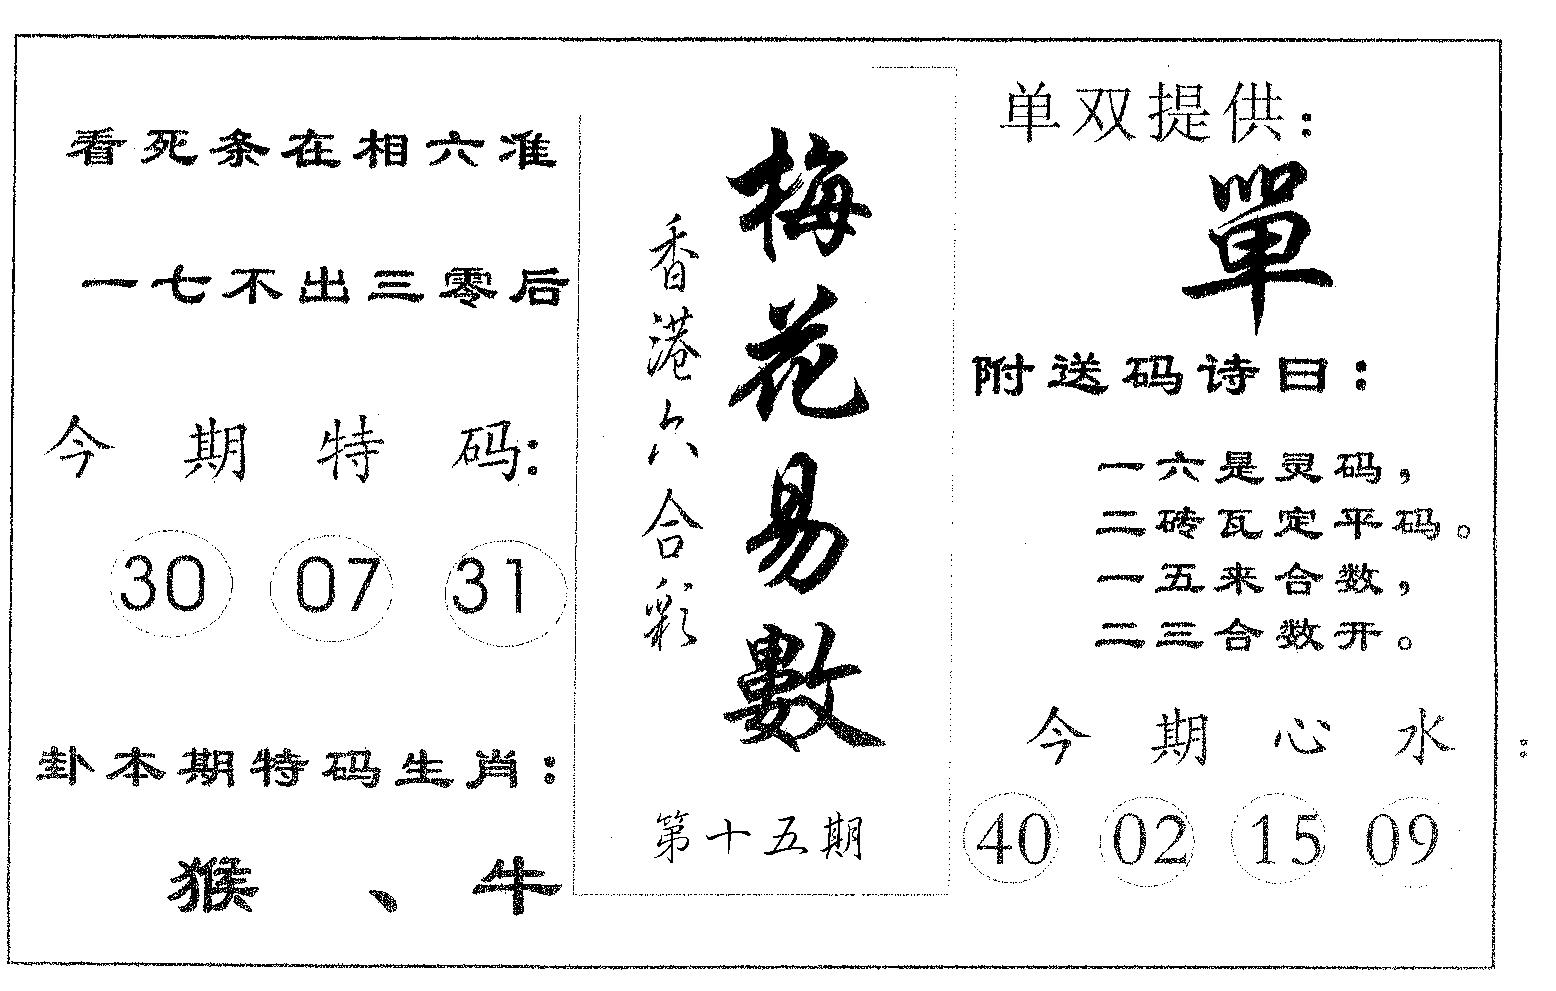 看死条在相六准
一七不出三零后
今期特码:
30 07 31
卦本期特码生肖:
猴、牛
梅花易數
香港六合彩
第十五期
单双提供:
單
附送码诗曰:
一六是灵码，
二砖瓦定平码。
一五来合数，
二三合数开。
今期心水:
40 02 15 09